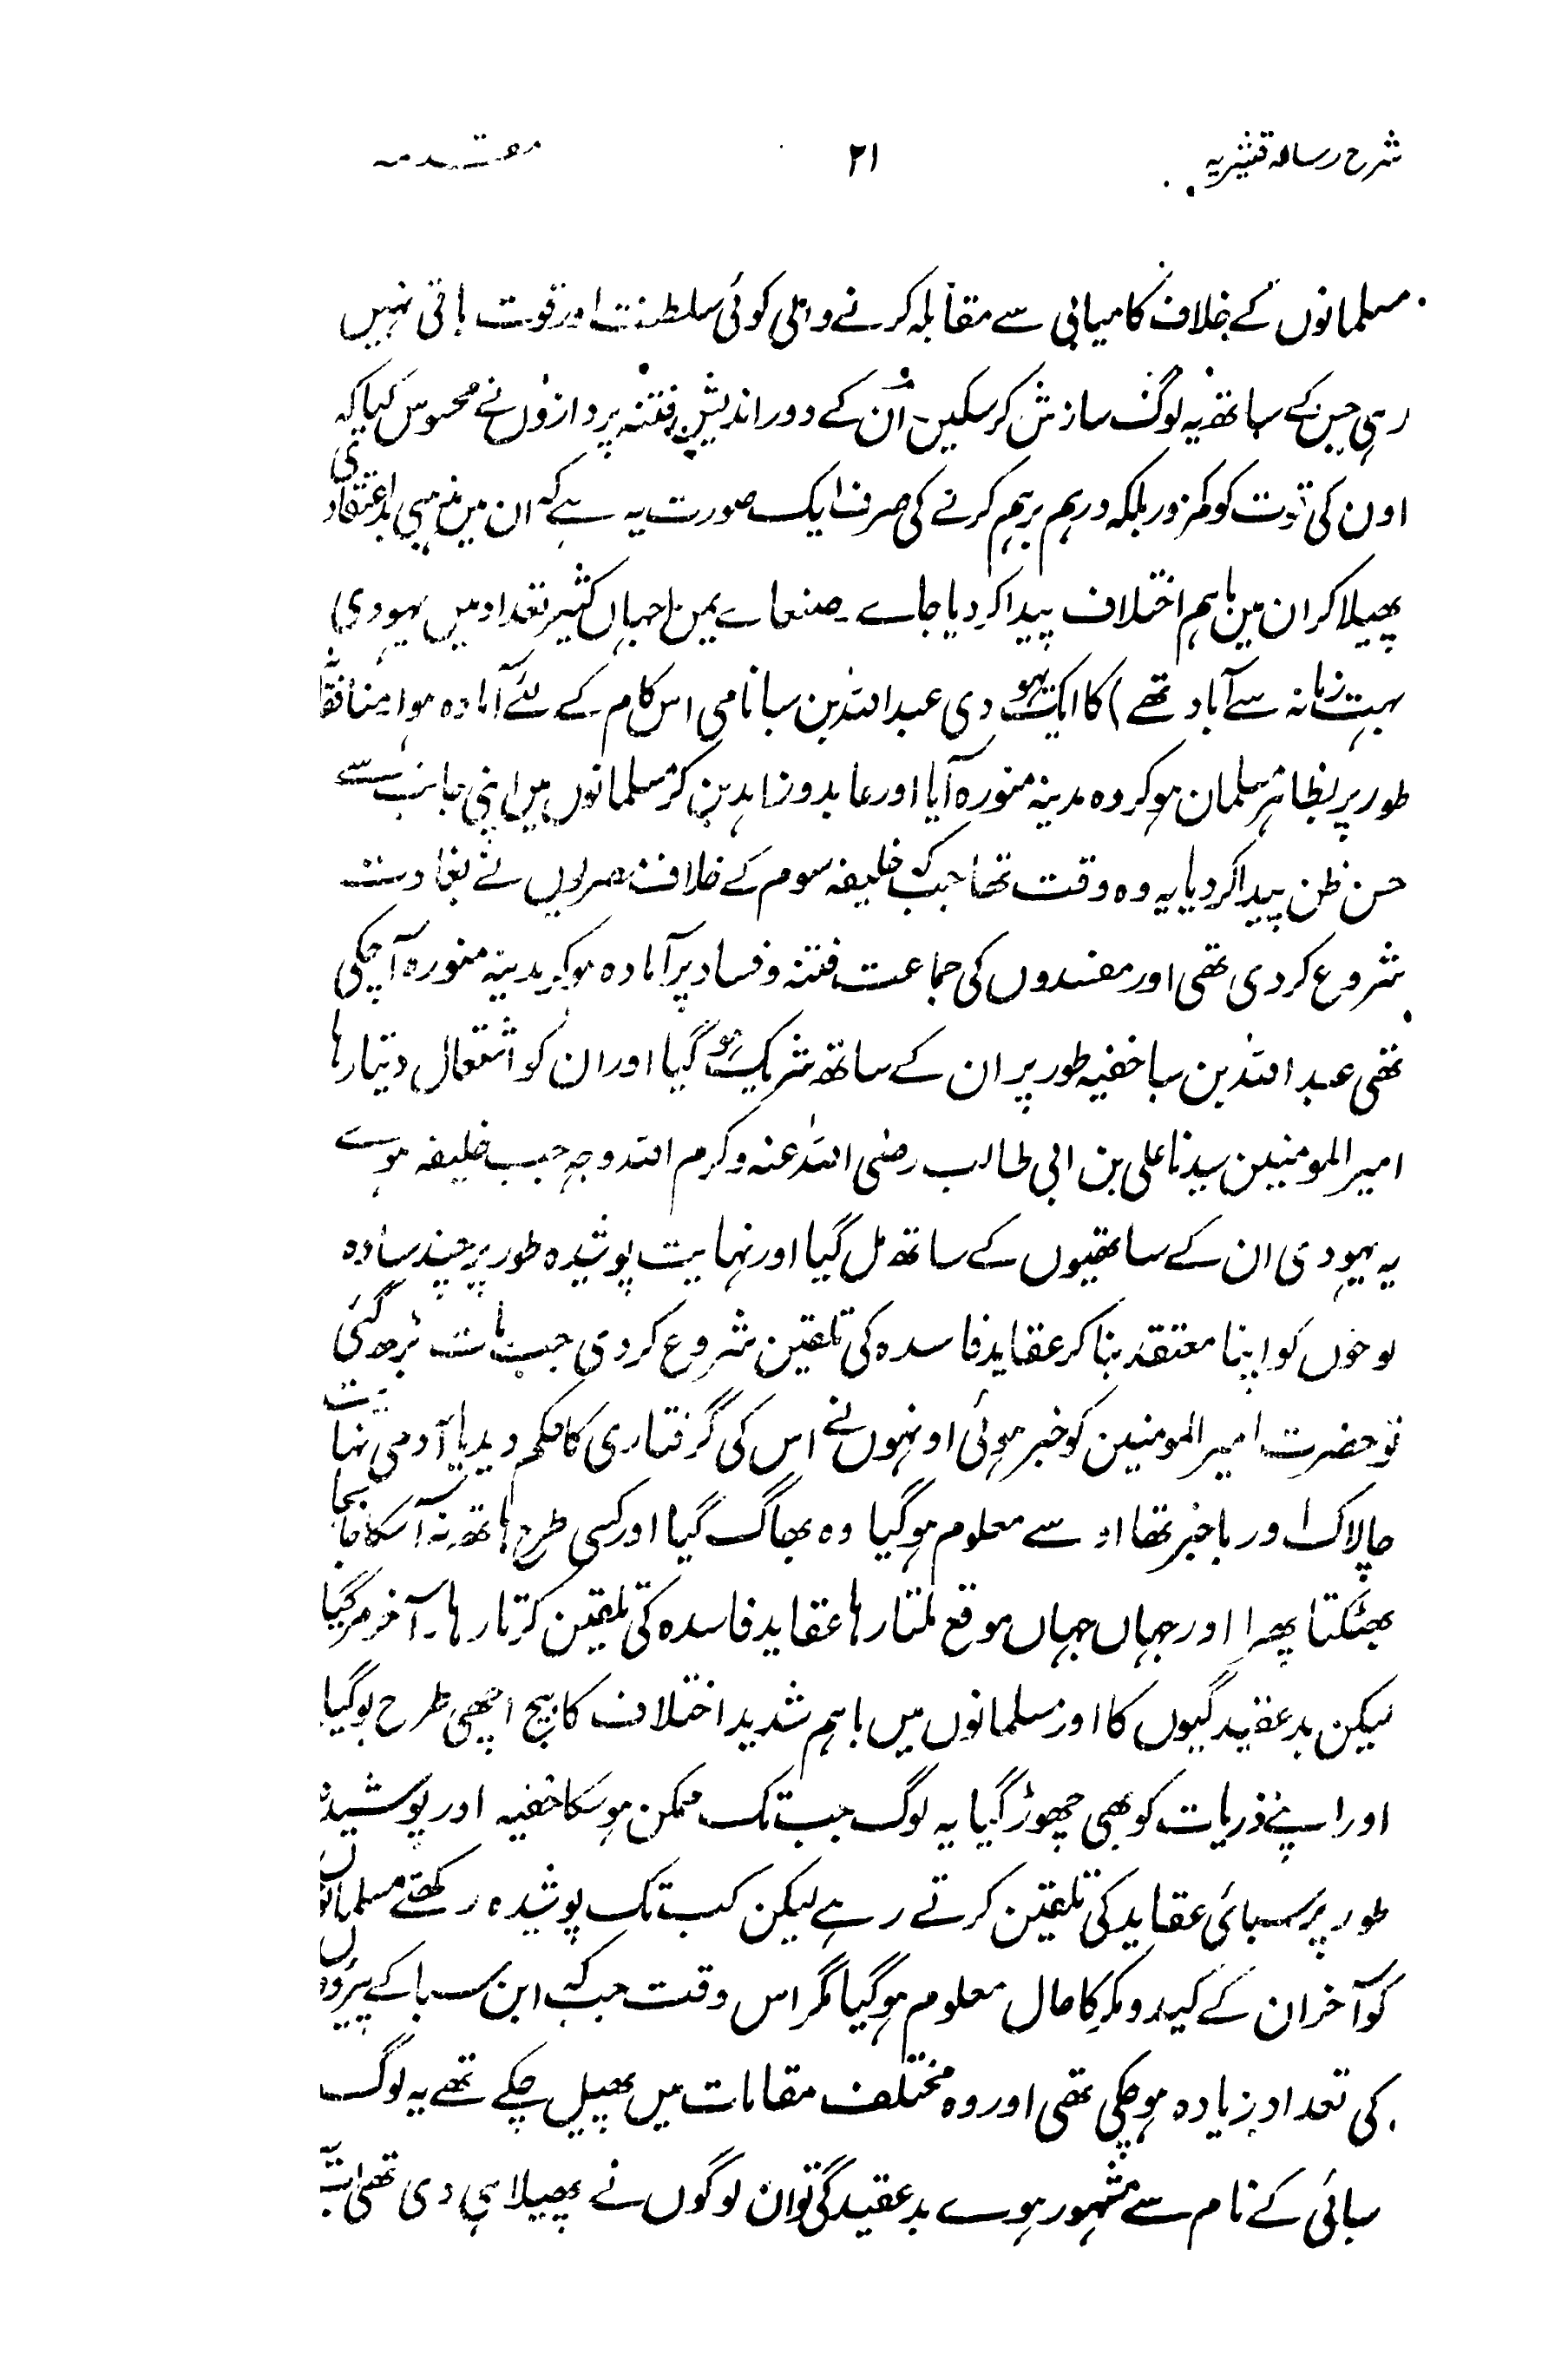 شرح رسالہ قشیریہ ۲۱ مقدمہ
مسلمانوں کے خلاف کامیابی سے مقابلہ کرنے والی کوئی سلطنت اور قوت باقی نہیں
رہی جس کے ساتھ یہ لوگ سازش کر سکیں۔ اُن کے دور اندیش فتنہ پردازوں نے محسوس کیا کہ
اون کی قوت کو کمزور بلکہ درہم برہم کرنے کی صرف ایک صورت یہ ہے کہ ان میں مذہبی بد اعتقادی
پھیلا کر ان میں باہم اختلاف پیدا کر دیا جاے۔ صنعاے یمن (جہاں کثیر تعداد میں یہودی
بہت زمانہ سے آباد تھے) کا ایک یہودی عبد اللہ بن سبا نامی اس کام کے لئے آمادہ ہوا منافقانہ
طور پر بظاہر مسلمان ہو کر وہ مدینہ منورہ آیا اور عابد و زاہد بن کر مسلمانوں میں اپنی جانب سے
حسن ظن پیدا کر دیا یہ وہ وقت تھا جب کہ خلیفہ سوم کے خلاف مصریوں نے بغاوت
شروع کر دی تھی اور مفسدوں کی جماعت فتنہ و فساد پر آمادہ ہو کر مدینہ منورہ آچکی
تھی عبد اللہ بن سبا خفیہ طور پر ان کے ساتھ شریک ہو گیا اور ان کو اشتعال دیتا رہا
امیر المومنین سیدنا علی بن ابی طالب رضی اللہ عنہ و کرم اللہ وجہ جب خلیفہ ہوے
یہ یہودی ان کے ساتھیوں کے ساتھ مل گیا اور نہایت پوشیدہ طور پر چند سادہ
لوحوں کو اپنا معتقد بنا کر عقاید فاسدہ کی تلقین شروع کر دی جب بات بڑھ گئی
تو حضرت امیر المومنین کو خبر ہوئی اونہوں نے اس کی گرفتاری کا حکم دیدیا آدمی نہایت
چالاک اور باخبر تھا او سے معلوم ہو گیا وہ بھاگ گیا اور کسی طرح ہاتھ نہ آ سکا جابجا
بھٹکتا پھرا اور جہاں جہاں موقع ملتا رہا عقاید فاسدہ کی تلقین کرتا رہا۔ آخر مر گیا
لیکن بد عقیدگیوں کا اور مسلمانوں میں باہم شدید اختلاف کا بیج اچھی طرح بو گیا
اور اپنے ذریات کو بھی چھوڑ گیا یہ لوگ جب تک ممکن ہو سکا خفیہ اور پوشیدہ
طور پر سبائی عقاید کی تلقین کرتے رہے لیکن کب تک پوشیدہ رکھتے مسلمانوں
کو آخر ان کے کید و مکر کا حال معلوم ہو گیا مگر اس وقت جب کہ ابن سبا کے پیروں
کی تعداد زیادہ ہو چکی تھی اور وہ مختلف مقامات میں پھیل چکے تھے یہ لوگ
سبائی کے نام سے مشہور ہوے بد عقیدگی تو ان لوگوں نے پھیلا ہی دی تھی اب